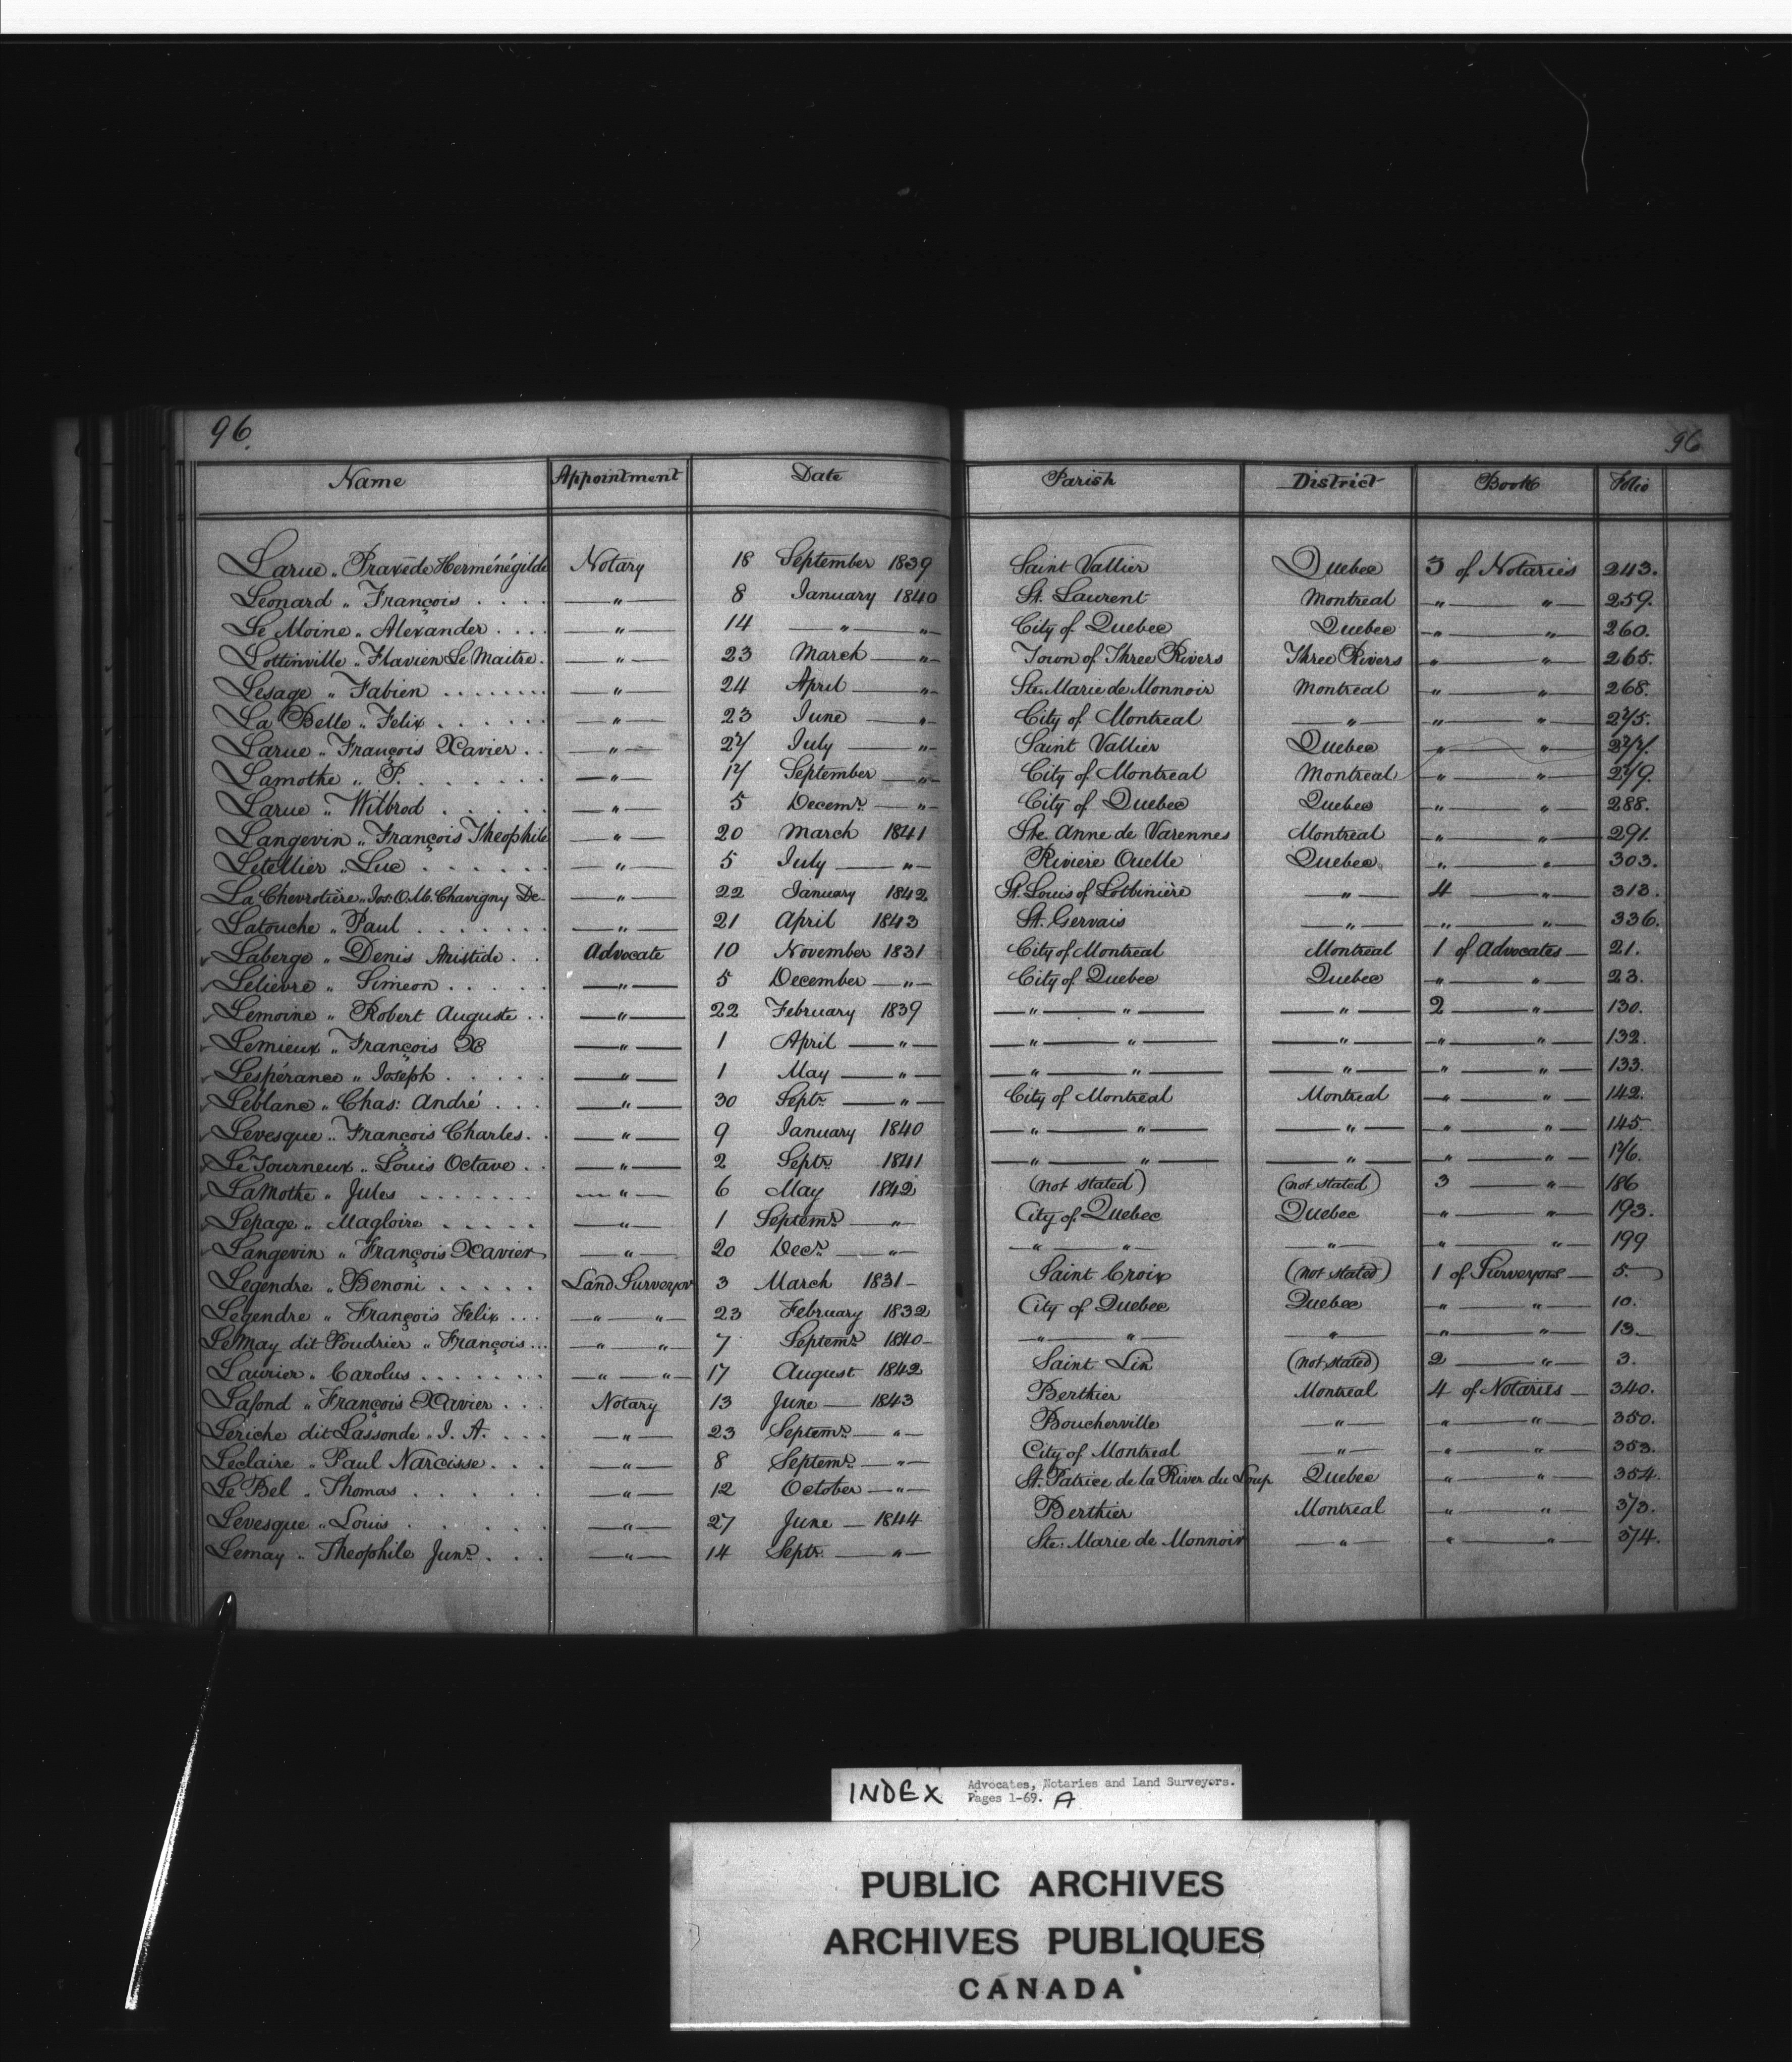 96.
96
Name Appointment Date Parish District Book Folio
Larue „ Praxéde Herménégilde Notary 18 September 1839 Saint Vallier Quebec 3 of Notaries 243.
Leonard „ François . . . . — „ — 8 January 1840 St. Laurent Montreal „ — „ — 259.
Le Moine „ Alexander . . . . — „ — 14 — „ — „ — City of Quebec Quebec „ — „ — 260.
Lottinville „ Flavien Le Maitre . — „ — 23 March — „ — Town of Three Rivers Three Rivers „ — „ — 265.
Lesage „ Fabien . . . . . . . — „ — 24 April — „ — Ste. Marie de Monnoir Montreal „ — „ — 268.
La Belle „ Felix . . . . . . — „ — 23 June — „ — City of Montreal — „ — „ — „ — 275.
Larue „ François Xavier . . — „ — 27 July — „ — Saint Vallier Quebec „ — „ — 277.
Lamothe „ P. . . . . . . — „ — 17 September — „ — City of Montreal Montreal „ — „ — 279.
Larue „ Wilbrod . . . . . — „ — 5 Decemr. — „ — City of Quebec Quebec „ — „ — 288.
Langevin „ François Theophile — „ — 20 March 1841 Ste. Anne de Varennes Montreal „ — „ — 291.
Letellier „ Luc . . . . . . — „ — 5 July — „ — Riviere Ouelle Quebec „ — „ — 303.
La Chevrotière „ Jos: O. M. Chavigny De — „ — 22 January 1842 St. Louis of Lotbinière — „ — 4 — „ — 313.
Latouche „ Paul . . . . . . . — „ — 21 April 1843 St. Gervais — „ — „ — „ — 336.
Laberge „ Denis Aristide . . Advocate 10 November 1831 City of Montreal Montreal 1 of Advocates — 21.
Lelievre „ Simeon . . . . . — „ — 5 December — „ — City of Quebec Quebec „ — „ — 23.
Lemoine „ Robert Auguste . . — „ — 22 February 1839 — „ — „ — — „ — 2 — „ — 130.
Lemieux „ François X — „ — 1 April — „ — — „ — „ — — „ — „ — „ — 132.
Lespérance „ Joseph . . . . . — „ — 1 May — „ — — „ — „ — — „ — „ — „ — 133.
Leblanc „ Chas: André . . . — „ — 30 Septr. — „ — City of Montreal Montreal „ — „ — 142.
Levesque „ François Charles . . — „ — 9 January 1840 — „ — „ — — „ — „ — „ — 145
Le Tourneux „ Louis Octave . . — „ — 2 Septr. 1841 — „ — „ — — „ — „ — „ — 176.
LaMothe „ Jules . . . . . . . — „ — 6 May 1842 (not stated) (not stated) 3 — „ — 186
Lepage „ Magloire . . . . . — „ — 1 Septemr. — „ — City of Quebec Quebec „ — „ — 193.
Langevin „ François Xavier — „ — 20 Decr. — „ — — „ — „ — — „ — „ — „ — 199
Legendre „ Benoni . . . . . Land Surveyor 3 March 1831 — Saint Croix (not stated) 1 of Surveyors — 5.
Legendre „ François Felix . . . — „ — „ — 23 February 1832 City of Quebec Quebec „ — „ — 10.
LeMay dit Poudrier „ François . . . — „ — „ — 7 Septemr. 1840 — — „ — „ — — „ — „ — „ — 13.
Laurier „ Carolus . . . . . . . — „ — „ — 17 August 1842 Saint Lin (not stated) 2 — „ — 3.
Lafond „ François Xavier . . . Notary 13 June — 1843 Berthier Montreal 4 of Notaries — 340.
Leriche dit Lassonde „ J. A. . . . — „ — 23 Septemr. — „ — Boucherville — „ — „ — „ — 350.
Leclaire „ Paul Narcisse . . . — „ — 8 Septemr. — „ — City of Montreal — „ — „ — „ — 353.
Le Bel „ Thomas . . . . . . — „ — 12 October — „ — St. Patrice de la River du Loup Quebec „ — „ — 354.
Levesque „ Louis . . . . . . — „ — 27 June — 1844 Berthier Montreal „ — „ — 373.
Lemay „ Theophile Junr. . . . — „ — 14 Septr. — „ — Ste: Marie de Monnoir — „ — „ — „ — 374.
INDEX Advocates, Notaries and Land Surveyors.
Pages 1-69. A
PUBLIC ARCHIVES
ARCHIVES PUBLIQUES
CANADA